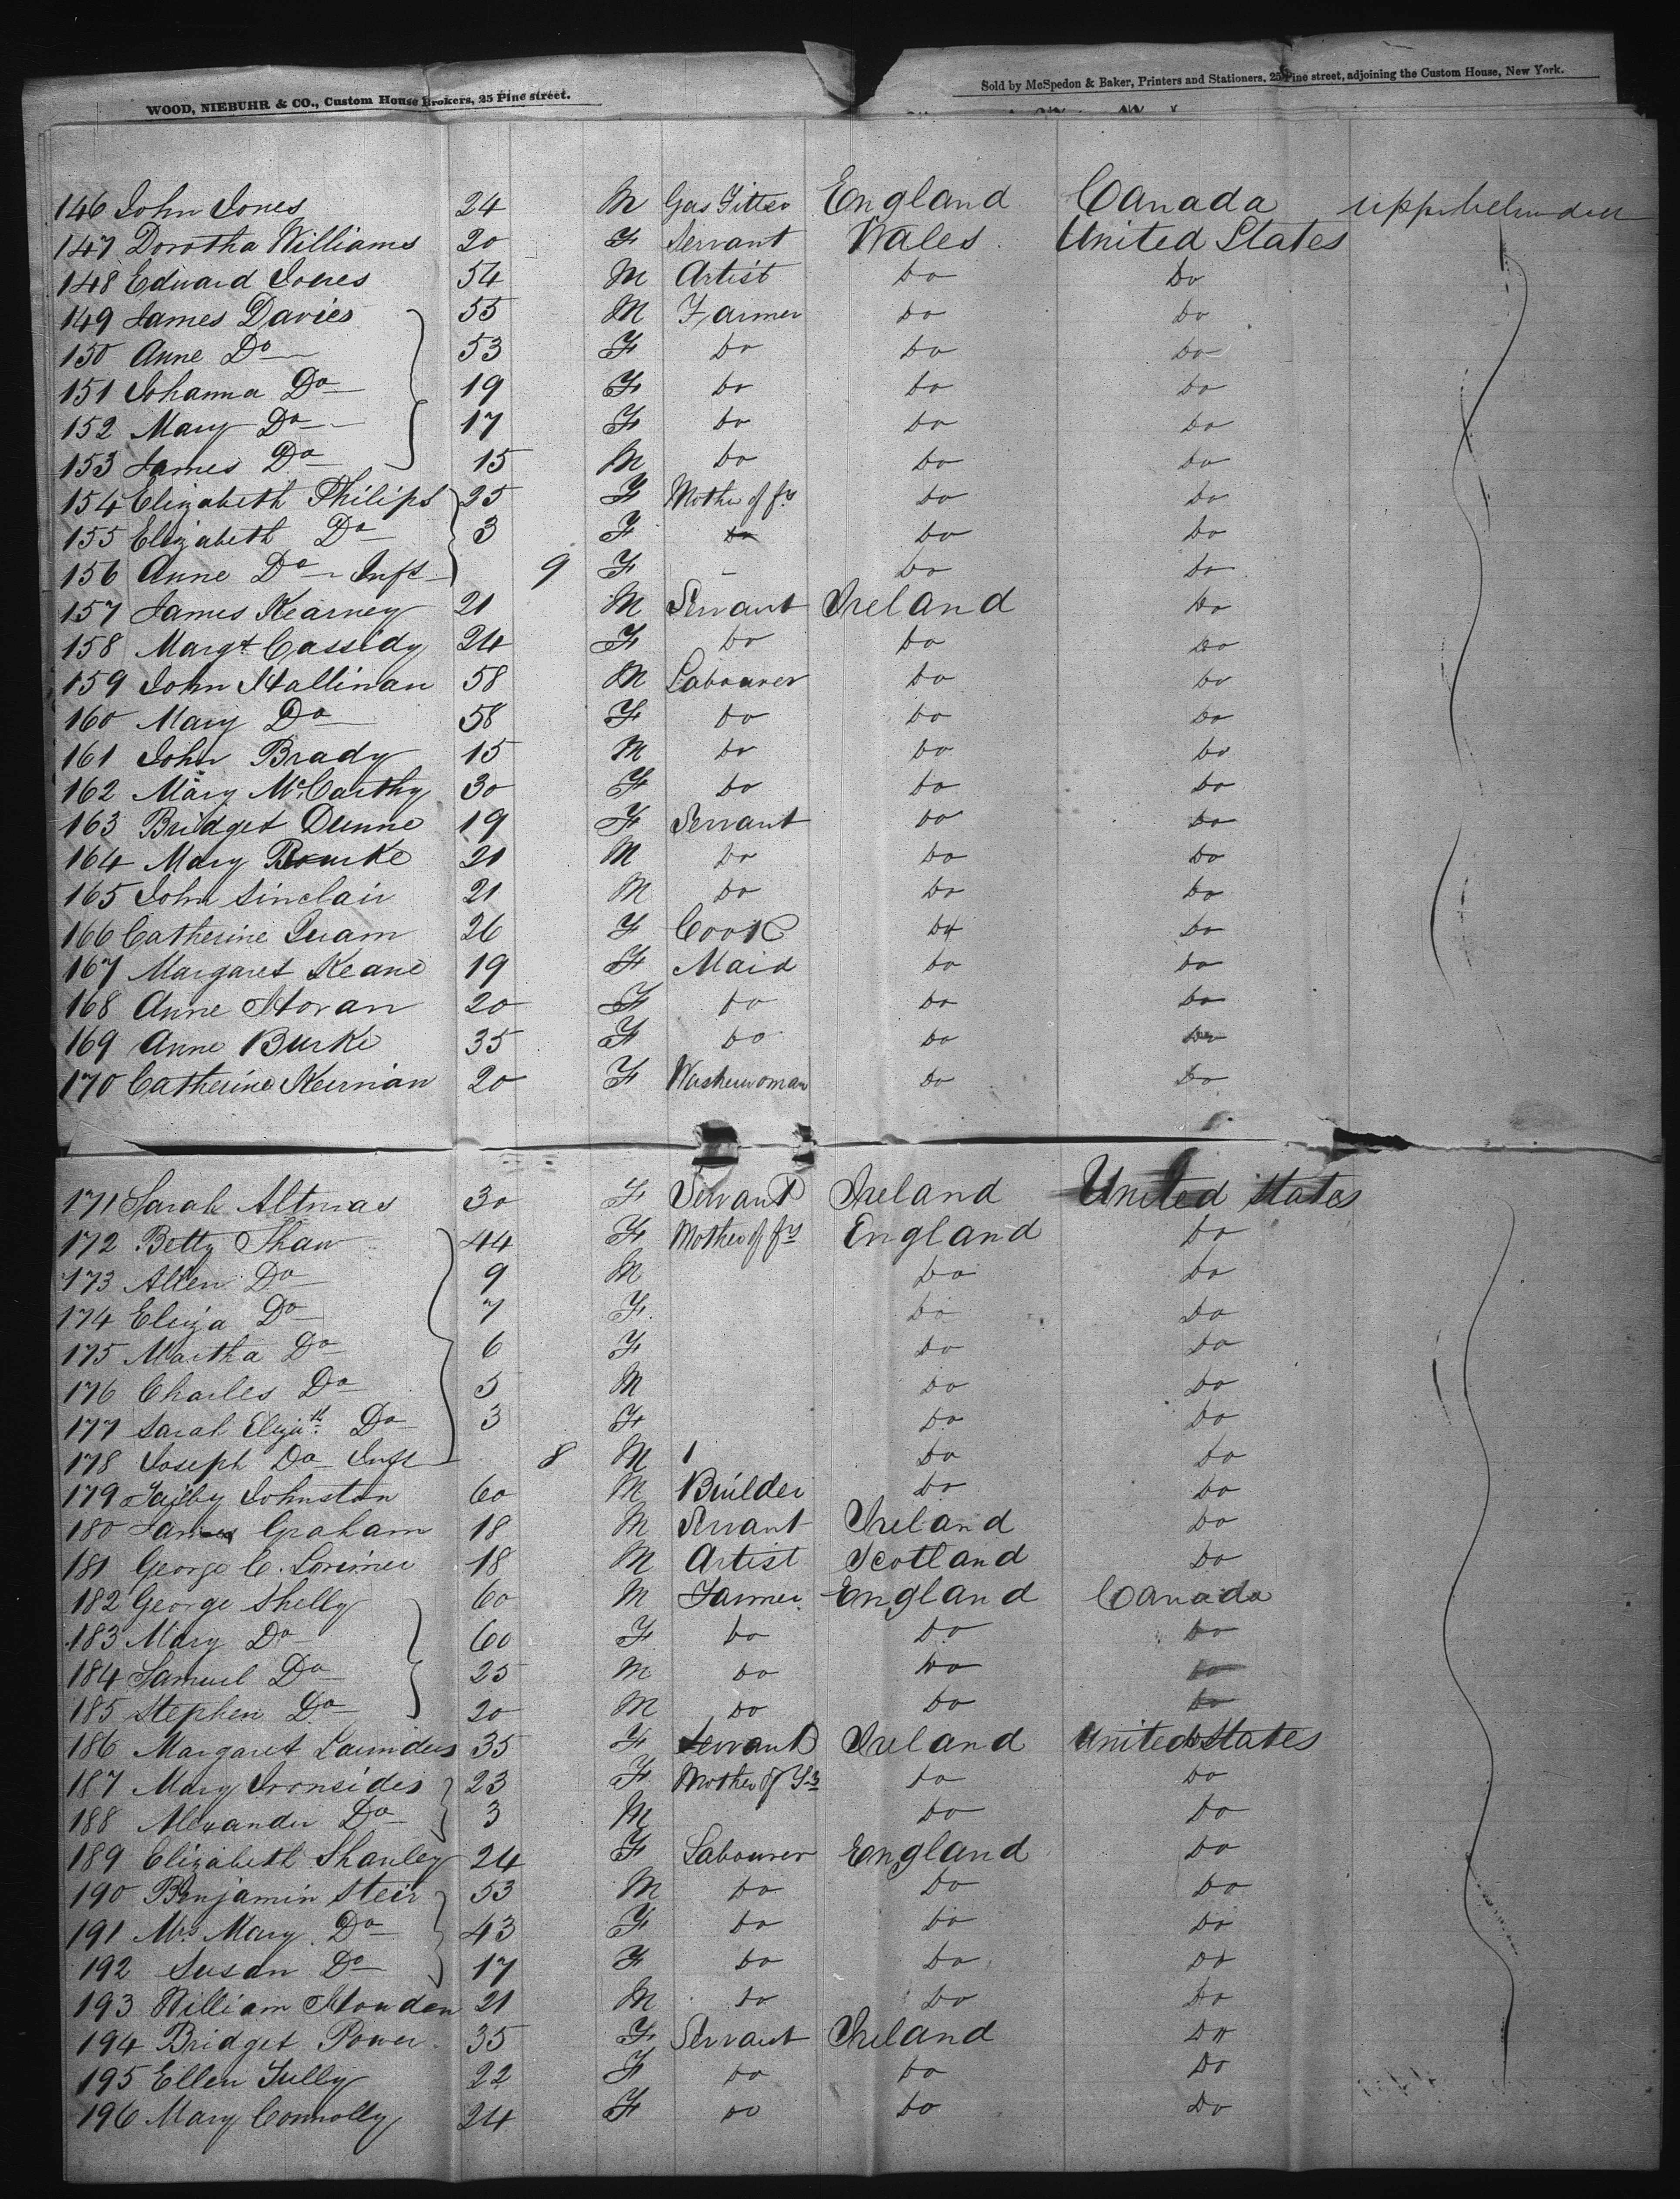 WOOD, NIEBUHR & CO., Custom House Brokers, 25 Pine street.
Sold by McSpedon & Baker, Printers and Stationers, 25 Pine street, adjoining the Custom House, New York.
146 John Jones 24 M Gas Fitter England Canada
147 Dorotha Williams 20 F Servant Wales United States
148 Edward Jones 54 M Artist Do Do
149 James Davies 55 M Farmer Do Do
150 Anne Do 53 F Do Do Do
151 Johanna Do 19 F Do Do Do
152 Mary Do 17 F Do Do Do
153 James Do 15 M Do Do Do
154 Elizabeth Philips 25 F Mother of fy Do Do
155 Elizabeth Do 3 F Do Do Do
156 Anne Do Inft 9 F - Do Do
157 James Kearney 21 M Servant Ireland Do
158 Margt Cassidy 24 F Do Do Do
159 John Hallinan 58 M Labourer Do Do
160 Mary Do 58 F Do Do Do
161 John Brady 15 M Do Do Do
162 Mary McCarthy 30 F Do Do Do
163 Bridget Dunne 19 F Servant Do Do
164 Mary Bourke 21 M Do Do Do
165 John Sinclair 21 M Do Do Do
166 Catherine 26 F Cook Do Do
167 Margaret Keane 19 F Maid Do Do
168 Anne Horan 20 F Do Do Do
169 Anne Burke 35 F Do Do Do
170 Catherine Kiernan 20 F Washerwoman Do Do
171 Sarah Altmas 30 F Servant Ireland United States
172 Betty Shaw 44 F Mother of fy England Do
173 Allen Do 9 M Do Do
174 Eliza Do 7 F Do Do
175 Martha Do 6 F Do Do
176 Charles Do 5 M Do Do
177 Sarah Elizth Do 3 F Do Do
178 Joseph Do Inft 8 M Do Do
179 Johnston 60 M Builder Do Do
180 James Graham 18 M Servant Ireland Do
181 George C. Lorimer 18 M Artist Scotland Do
182 George Shelly 60 M Farmer England Canada
183 Mary Do 60 F Do Do Do
184 Samuel Do 25 M Do Do Do
185 Stephen Do 20 M Do Do Do
186 Margaret Saunders 35 F Servant Ireland United States
187 Mary Ironsides 23 F Mother of Do Do
188 Alexander Do 3 M Do Do
189 Elizabeth Shanley 24 F Labourer England Do
190 Benjamin Steir 53 M Do Do Do
191 Mrs Mary Do 43 F Do Do Do
192 Susan Do 17 F Do Do Do
193 William Howden 21 M Do Do Do
194 Bridget Power 35 F Servant Ireland Do
195 Ellen Tully 22 F Do Do Do
196 Mary Connolly 24 F Do Do Do